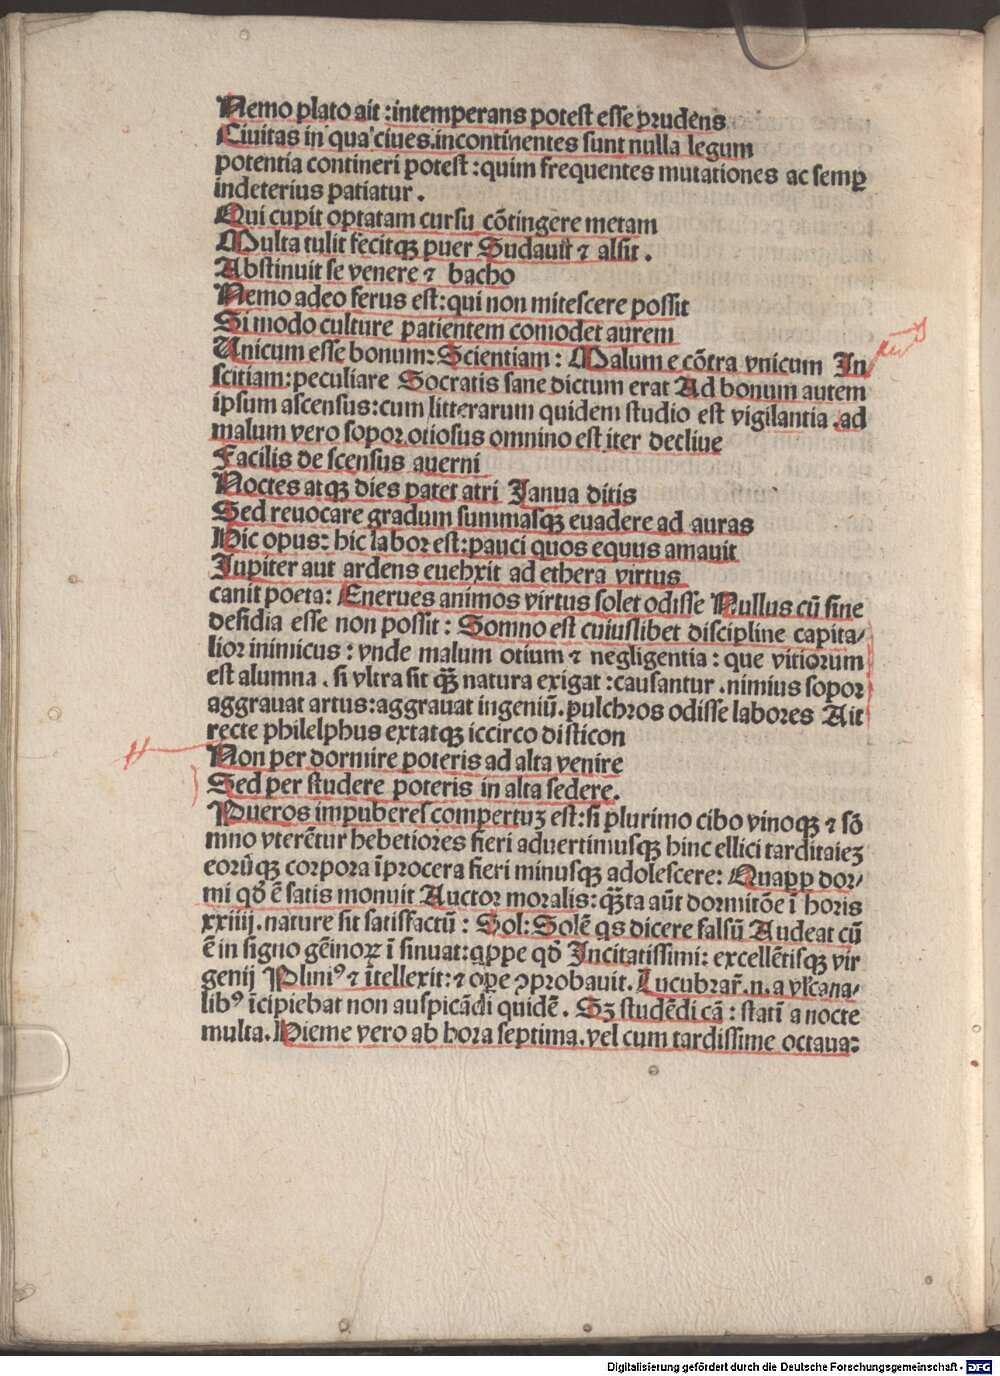 Nemo plato ait :intemperans potest esse prudens
Ciuitas in qua ciues.incontinentes sunt nulla legum
potentia contineri potest :quim frequentes mutationes ac semꝑ
indeterius patiatur .
Qui cupit optatam cursu cõtingere metam
Multa tulit fecitqꝫ puer Sudauit ⁊ alsit .
Abstinuit se venere ⁊ bacho
Nemo adeo ferus est:qui non mitescere possit
Si modo culture patientem comodet aurem
Unicum esse bonum: Scientiam : Malum e cõtra vnicum In
scitiam:peculiare Socratis sane dictum erat Ad bonum autem
ipsum ascensus:cum litterarum quidem studio est vigilantia .ad
malum vero sopor.otiosus omnino est iter decliue
Facilis de scensus auerni
Noctes atqꝫ dies patet atri Janua ditis
Sed reuocare gradum summasqꝫ euadere ad auras
Hic opus: hic labor est:pauci quos equus amauit
Jupiter aut ardens euehxit ad ethera virtus
canit poeta: Enerues animos virtus solet odisse Nullus cũ sine
desidia esse non possit : Somno est cuiuslibet discipline capita/
lior inimicus : vnde malum otium ⁊ negligentia : que vitiorum
est alumna . si vltra sit qꝫ̃ natura exigat :causantur .nimius sopor
aggrauat artus:aggrauat ingeniũ.pulchros odisse labores Ait
recte philelphus extatqꝫ iccirco disticon
Non per dormire poteris ad alta venire
Sed per studere poteris in alta sedere.
Pueros impuberes compertuꝫ est:si plurimo cibo vinoqꝫ ⁊ sõ
mno vterẽtur hebetiores fieri aduertimusqꝫ hinc ellici tarditateꝫ
eorũqꝫ corpora ĩprocera fieri minusqꝫ adolescere: Quaꝓꝑ dor/
mi qđ ẽ satis monuit Auctor moralis: qꝫ̃ta aũt dormitõe ĩ horis
xxiiij.nature sit satisfactũ : Sol: Solẽ qs dicere falsũ Audeat cũ
ẽ in signo gẽinoꝝ ĩ sinuat:qppe qđ Incitatissimi: excellẽtisqꝫ vir
genij Pliniꝰ ⁊ ĩtellexit:⁊ oꝑe ꝓprobauit. Lucubrar̃.n.a vlcana/
libꝰ ĩcipiebat non auspicãdi quidẽ. Sꝫ studẽdi cã : statĩ a nocte
multa. Hieme vero ab hora septima.vel cum tardissime octaua:
Digitalisierung gefördert durch die Deutsche Forschungsgemeinschaft - DFG